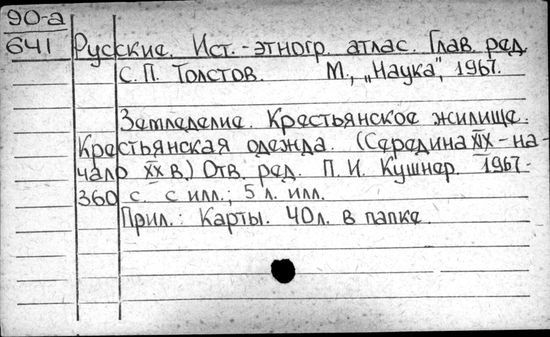 90-а
641
Русские. Ист.-этногр. атлас. Глав. ред.
С.П. Толстов. М., „Наука", 1967.
Земледелие. Крестьянское жилище.
Крестьянская одежда. (Середина XIX - на-
чало XX в.) Отв. ред. П. И. Кушнер. 1967.
360 с. с илл.; 5 л. илл.
Прил.: Карты. 40 л. в папке.